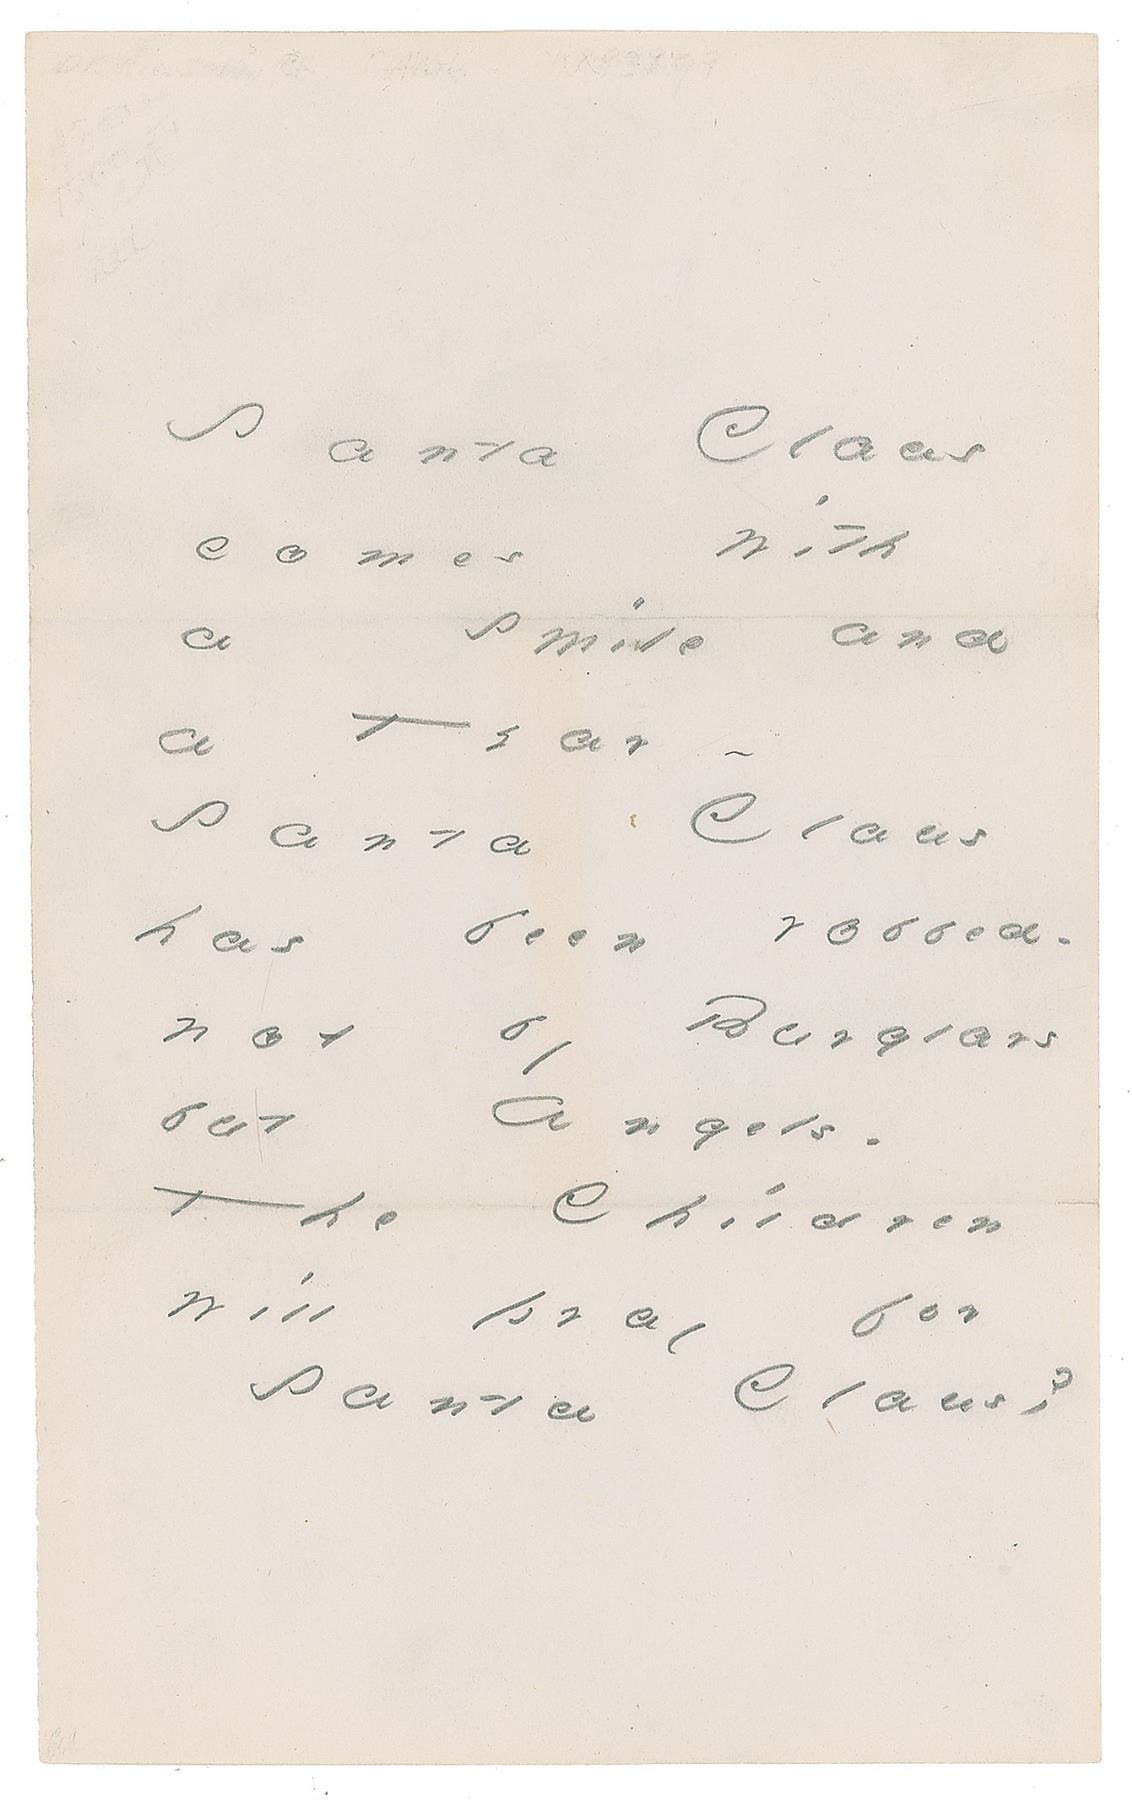 Santa Claus
comes with
a smile and
a Tear -
Santa Claus
has been robbed.
not by Burglars
but Angels.
The Children
will pray for
Santa Claus?